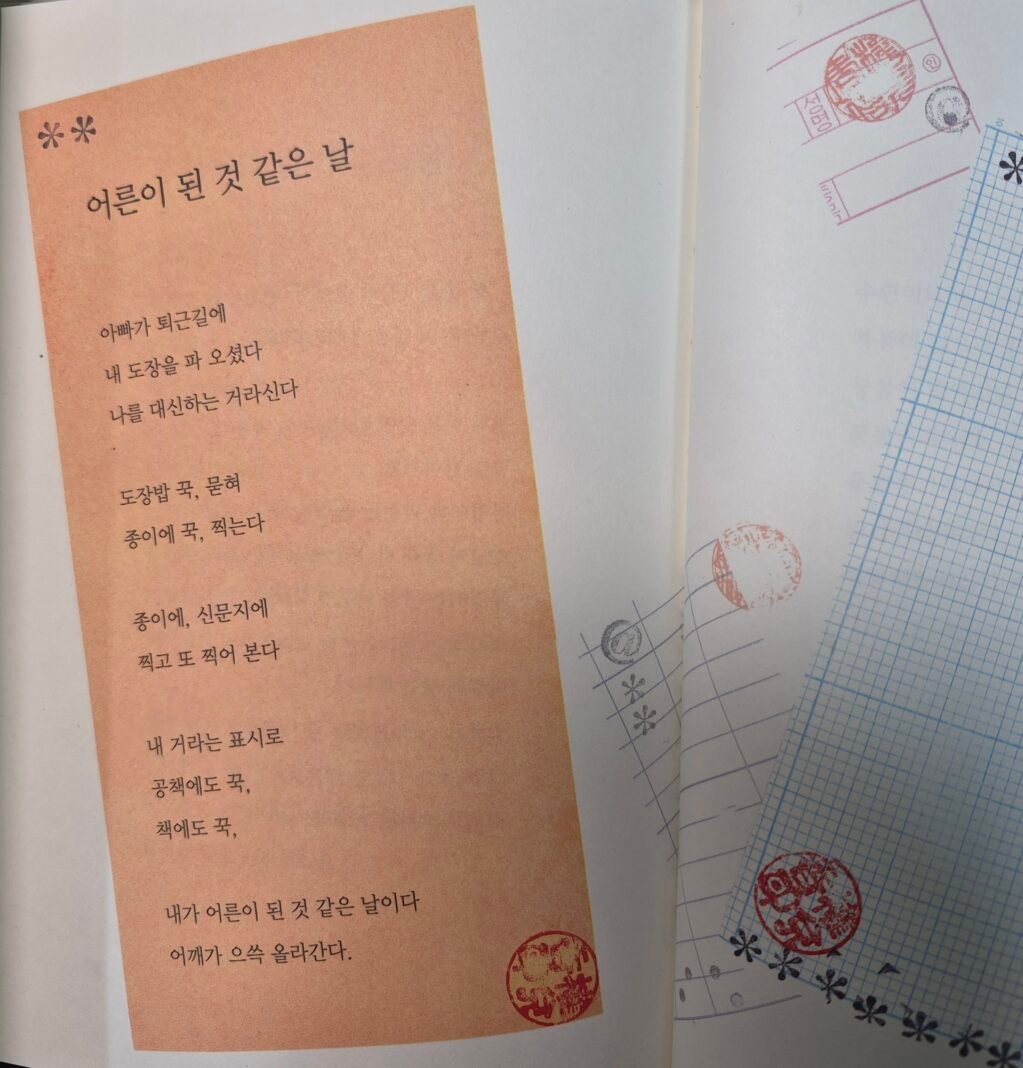 어른이 된 것 같은 날
아빠가 퇴근길에
내 도장을 파 오셨다
나를 대신하는 거라신다
도장밥 꾹, 묻혀
종이에 꾹, 찍는다
종이에, 신문지에
찍고 또 찍어 본다
내 거라는 표시로
공책에도 꾹,
책에도 꾹,
내가 어른이 된 것 같은 날이다
어깨가 으쓱 올라간다.
성명
인